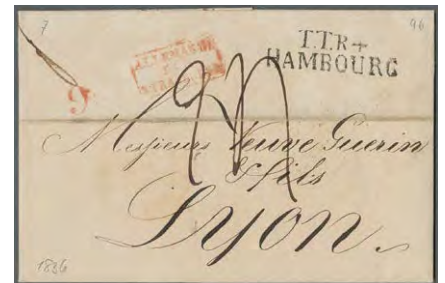 7
96
T.T.R+
HAMBOURG
ALLEMAGNE
9
Messieurs Veuve Guerin
& fils
Lyon.
1836